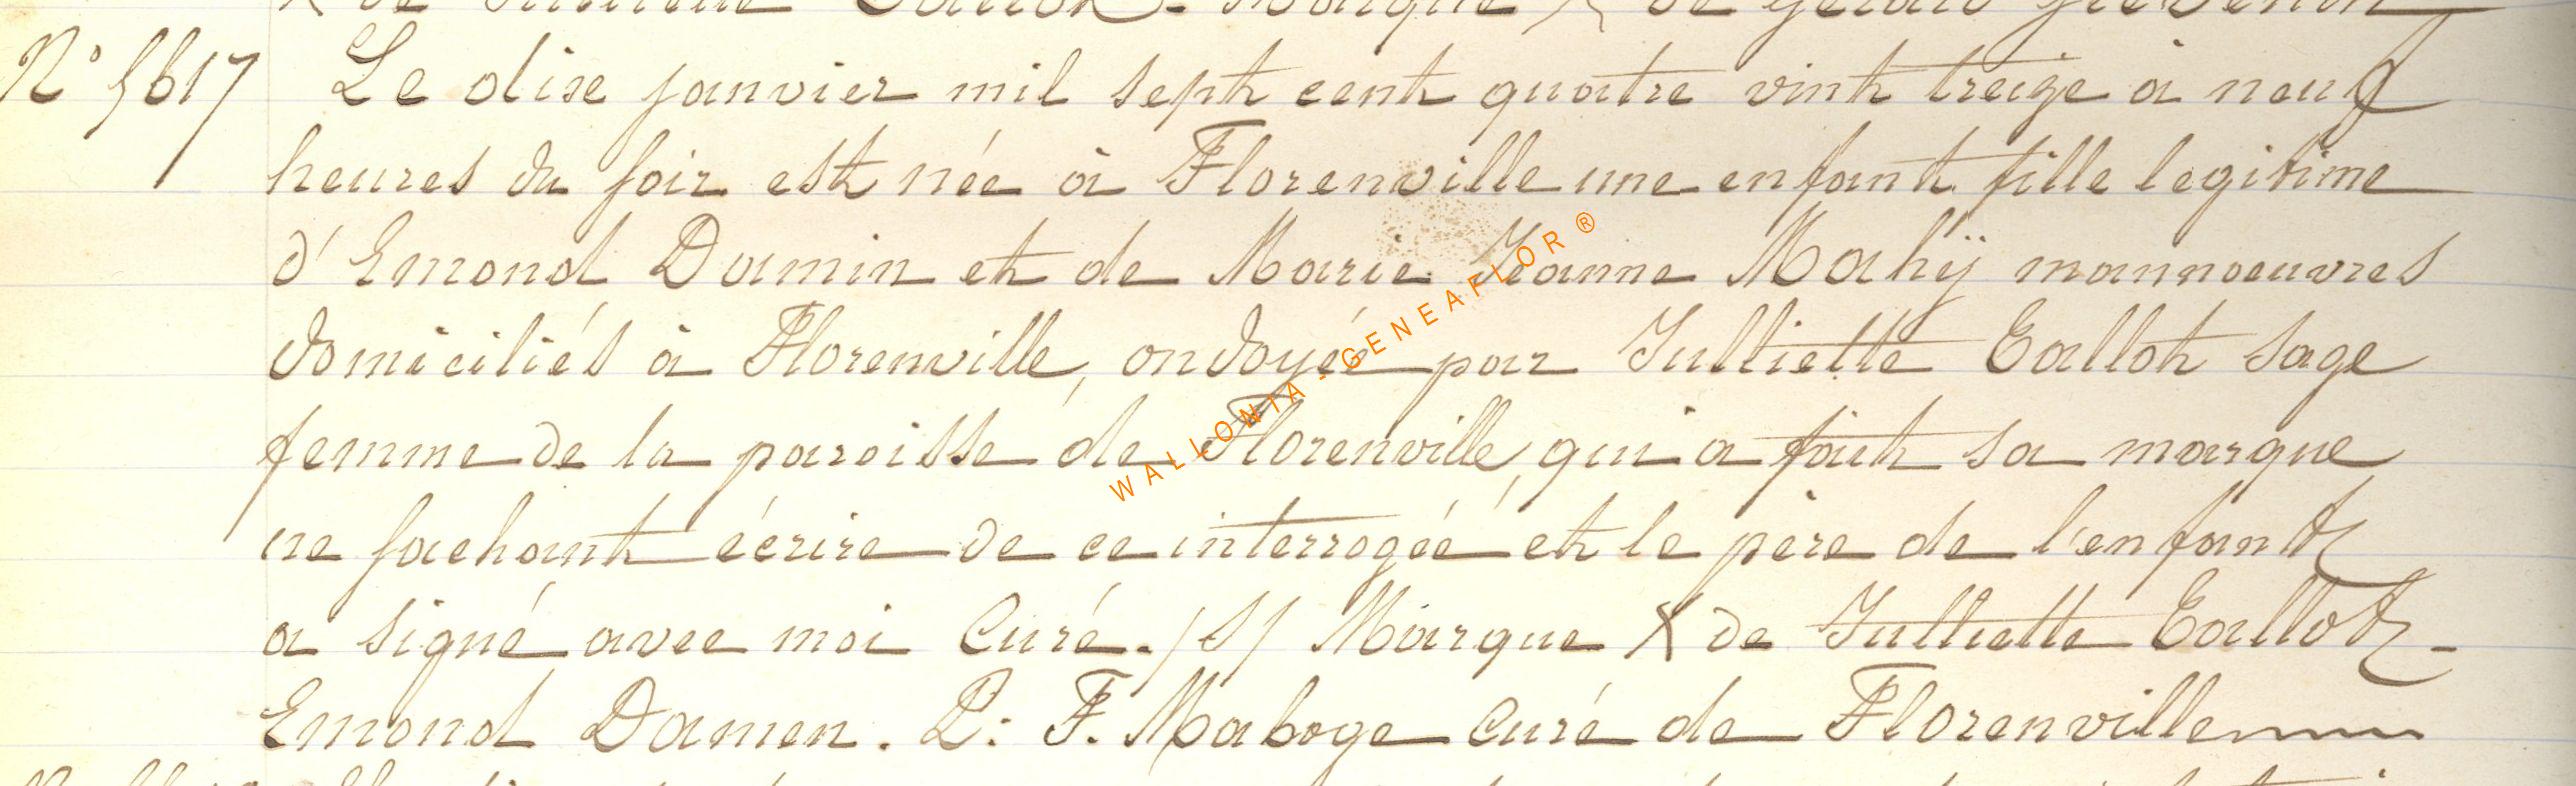 X de Julliette Eallot. Marque X de Gerard
N° 5617 Le dise janvier mil sept cent quatre vint treize à neuf
heures du foir est née à Florenville une enfant fille legitime
d'Emond Damin et de Marie Jeanne Mahÿ mannoeuvres
domiciliés à Florenville, ondoyée par Julliette Eallot sage
femme de la paroisse de Florenville, qui a fait sa marque
ne fachant écrire de ce interrogée et le père de l'enfant
a signé avec moi Curé. /S/ Marque X de Julliette Eallot -
Emond Damen. P: F. Maboge Curé de Florenville
WALLONIA-GENEAFLOR®